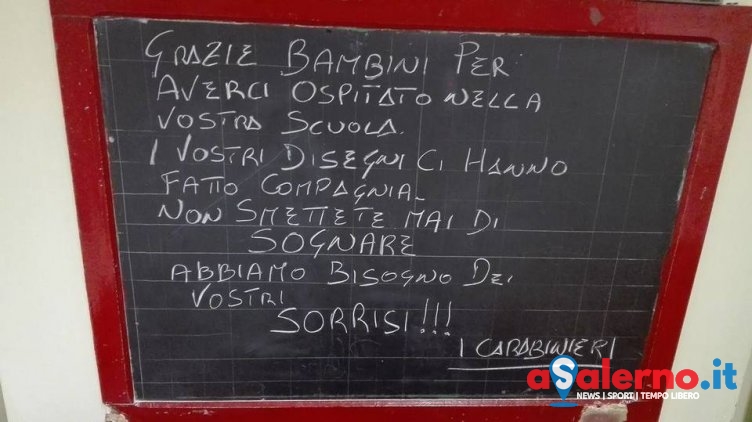 GRAZIE BAMBINI PER
AVERCI OSPITATO NELLA
VOSTRA SCUOLA.
I VOSTRI DISEGNI CI HANNO
FATTO COMPAGNIA.
NON SMETTETE MAI DI
SOGNARE
ABBIAMO BISOGNO DEI
VOSTRI
SORRISI!!!
I CARABINIERI
aSalerno.it
NEWS | SPORT | TEMPO LIBERO